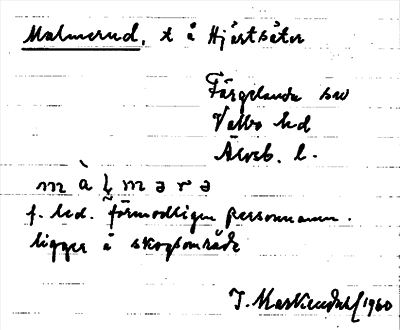 Malmerud, t å Hjärtsäter
Färgelanda sn
Valbo hd
Älvsb. l.
m à l̥ m ə r ə
f. led. förmodligen personnamn.
ligger å skogsområde
1960